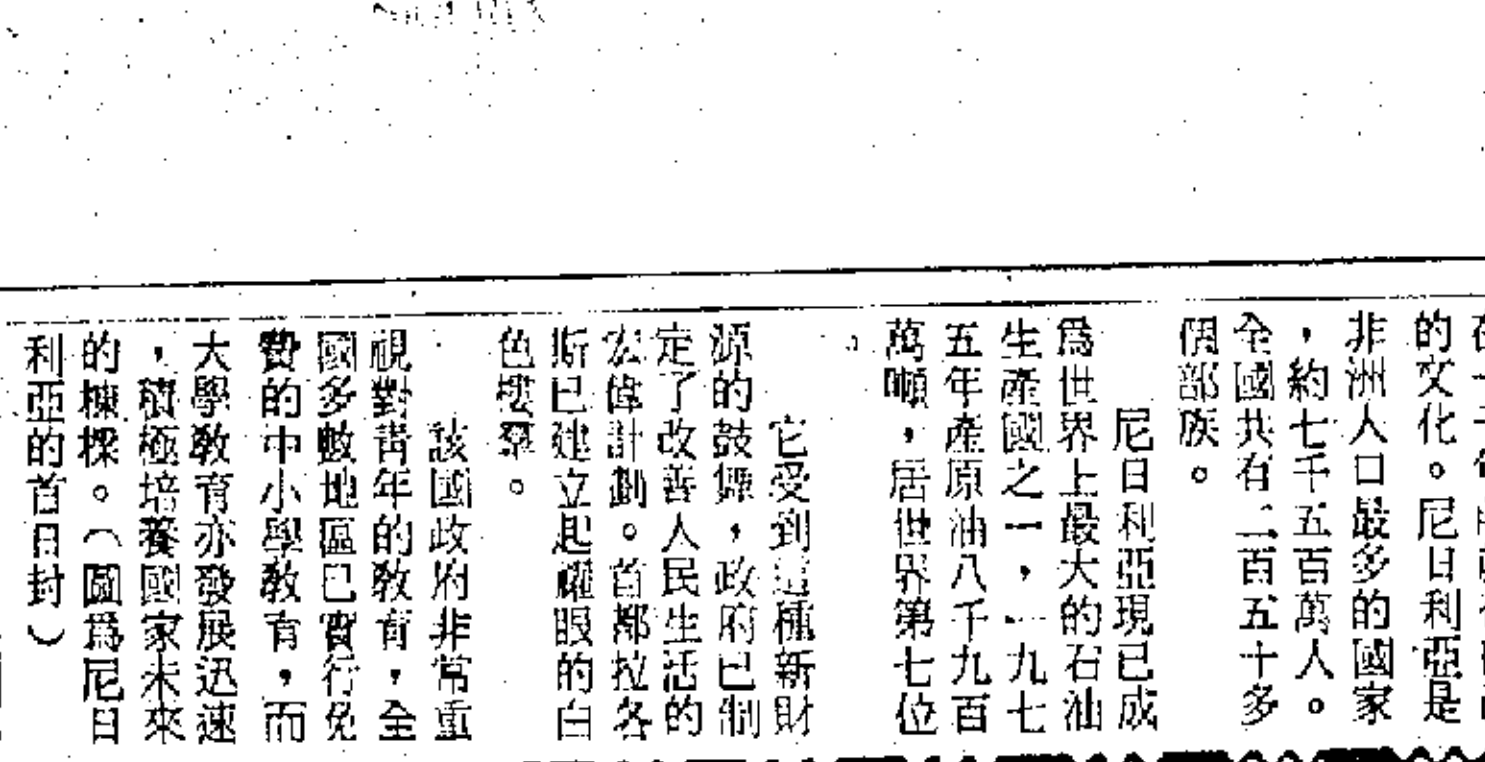 的文化。尼日利亞是
非洲人口最多的國家
，約七千五百萬人。
全國共有二百五十多
個部族。
尼日利亞現已成
爲世界上最大的石油
生產國之一，一九七
五年產原油八千九百
萬噸，居世界第七位
。
它受到這種新財
源的鼓舞，政府已制
定了改善人民生活的
宏偉計劃。首都拉各
斯已建立起耀眼的白
色樓羣。
該國政府非常重
視對青年的教育，全
國多數地區已實行免
費的中小學教育，而
大學教育亦發展迅速
，積極培養國家未來
的棟樑。（圖爲尼日
利亞的首日封）